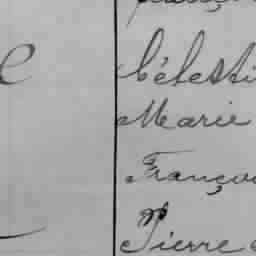 Célesti
Marie
Françoi
Pierre